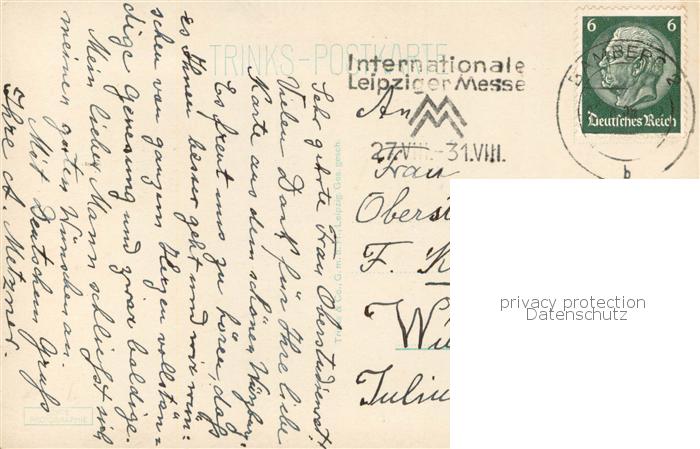 TRINKS-POSTKARTE
Sehr geehrte Frau Oberstudienrat!
Vielen Dank für Ihre liebe
Karte aus dem schönen Würzburg.
Es freut uns zu hören, daß
es Ihnen besser geht und wir wün-
schen von ganzem Herzen vollstän=
dige Genesung und zwar baldige.
Mein lieber Mann schließt sich
meinen guten Wünschen an.
Mit Deutschem Gruß
Ihre A. Metzner.
Trinks & Co., G. m. b. H., Leipzig Ges. gesch.
PHOTOGRAPHIE
Internationale
Leipziger Messe
MM
27.VIII.-31.VIII.
6 6
Deutsches Reich
BAMBERG 2
b
An
Frau
Oberst
F. K
Wü
Juliu
privacy protection
Datenschutz